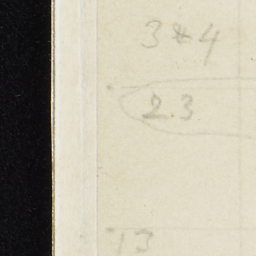 3 & 4
2.3
13